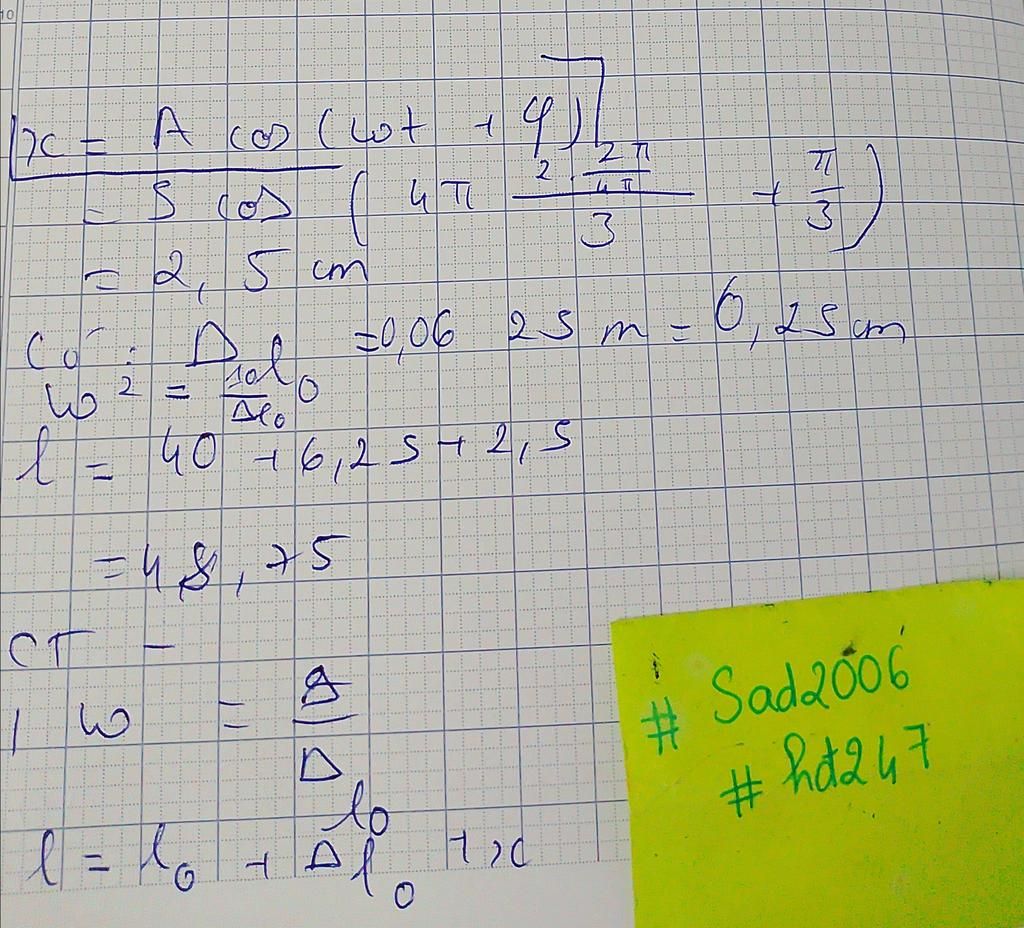 x = A cos (ωt + φ)
= 5 cos ( 4π \frac{2 \cdot \frac{2π}{4π}}{3} + \frac{π}{3} )
= 2,5 cm
Có : Δl₀ = 0,0625 m = 6,25 cm
ω² = \frac{10}{Δl₀}
l = 40 + 6,25 + 2,5
= 48,75
CT -
ω = \frac{g}{Δl₀}
l = l₀ + Δl₀ + x
# Sad2006
# hdt247